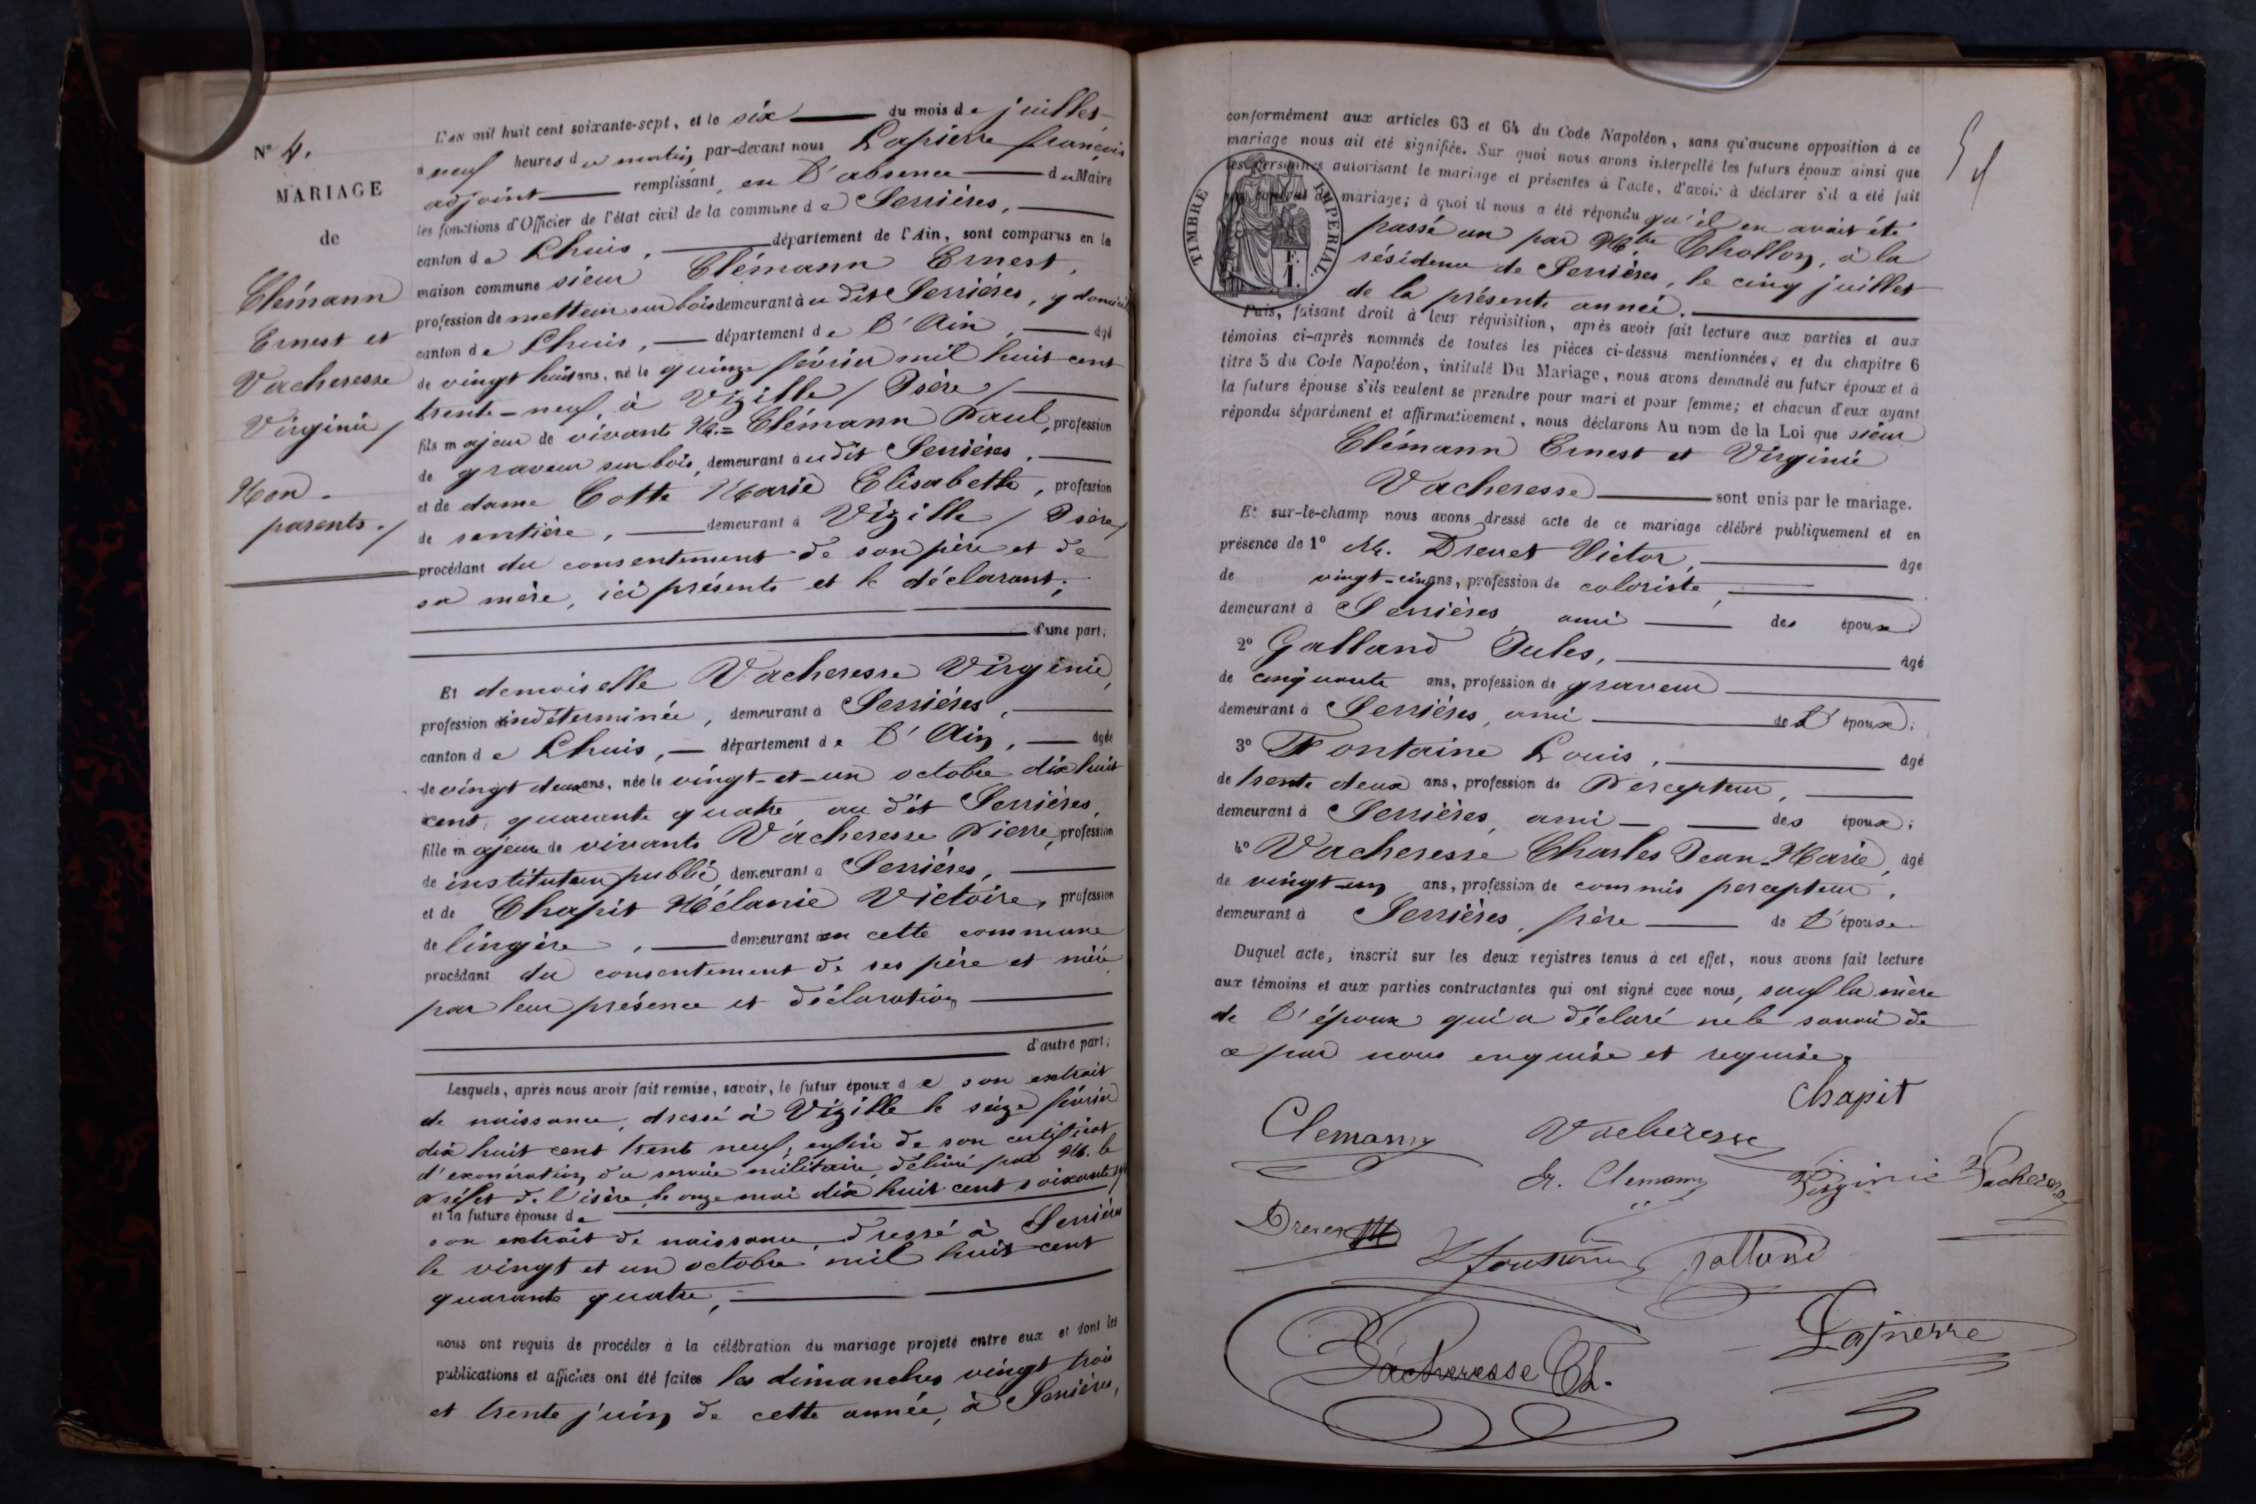 N° 4.
MARIAGE
de
Clémann
Ernest et
Vacheresse
Virginie /
Non
parents. /
L'an mil huit cent soixante-sept, et le six du mois de juillet
à neuf heures du matin, par-devant nous Lapierre françois
adjoint remplissant en l'absence du Maire
les fonctions d'Officier de l'état civil de la commune de Serrières,
canton de Lhuis, département de l'Ain, sont comparus en la
maison commune sieur Clémann Ernest,
profession de metteur sur bois demeurant à u dit Serrières, y domicilié
canton de Lhuis, département de l'Ain, âgé
de vingt huit ans, né le quinze février mil huit cent
trente-neuf, à Vizille / Isère /
fils majeur de vivants M.= Clémann Paul, profession
de graveur sur bois, demeurant audit Serrières,
et de dame Cotte Marie Elisabeth, profession
de rentière, demeurant à Vizille / Isère /
procédant du consentement de son père et de
sa mère, ici présents et le déclarant;
d'une part;
Et demoiselle Vacheresse Virginie,
profession indéterminée, demeurant à Serrières,
canton de Lhuis, département de l'Ain, âgée
de vingt deux ans, née le vingt-et-un octobre dix huit
cent quarante quatre au dit Serrières,
fille majeure de vivants Vacheresse Pierre, profession
de instituteur public, demeurant à Serrières,
et de Chapit Mélanie Victoire, profession
de lingère, demeurant en cette commune
procédant du consentement de ses père et mère
par leur présence et déclaration
d'autre part;
Lesquels, après nous avoir fait remise, savoir, le futur époux de son extrait
de naissance, dressé à Vizille le seize février
dix huit cent trente neuf; enfin de son certificat
d'exonération du service militaire, délivré par M. le
préfet de l'isère, le onze mai dix huit cent soixante
et la future épouse de
son extrait de naissance, dressé à Serrières
le vingt et un octobre mil huit cent
quarante quatre,
nous ont requis de procéder à la célébration du mariage projeté entre eux et dont les
publications et affiches ont été faites les dimanches vingt trois
et trente juin de cette année, à Serrières,
conformément aux articles 63 et 64 du Code Napoléon, sans qu'aucune opposition à ce
mariage nous ait été signifiée. Sur quoi nous avons interpellé les futurs époux ainsi que
les personnes autorisant le mariage et présentes à l'acte, d'avoir à déclarer s'il a été fait
un contrat de mariage; à quoi il nous a été répondu qu'il en avait été
TIMBRE IMPÉRIAL.
passé un par Mtre Chollon, à la
résidence de Serrières, le cinq juillet
de la présente année.
Puis, faisant droit à leur réquisition, après avoir fait lecture aux parties et aux
témoins ci-après nommés de toutes les pièces ci-dessus mentionnées, et du chapitre 6
titre 5 du Code Napoléon, intitulé Du Mariage, nous avons demandé au futur époux et à
la future épouse s'ils veulent se prendre pour mari et pour femme; et chacun d'eux ayant
répondu séparément et affirmativement, nous déclarons Au nom de la Loi que sieur
Clémann Ernest et Virginie
Vacheresse sont unis par le mariage.
Et sur-le-champ nous avons dressé acte de ce mariage célébré publiquement et en
présence de 1° M. Drevet Victor, âgé
de vingt-cinq ans, profession de coloriste,
demeurant à Serrières ami des époux;
2° Galland Jules, âgé
de cinquante ans, profession de graveur
demeurant à Serrières, ami de l'époux;
3° Fontaine Louis, âgé
de trente deux ans, profession de Percepteur,
demeurant à Serrières, ami des époux;
4° Vacheresse Charles Jean-Marie, âgé
de vingt-un ans, profession de commis percepteur,
demeurant à Serrières, frère de l'épouse.
Duquel acte, inscrit sur les deux registres tenus à cet effet, nous avons fait lecture
aux témoins et aux parties contractantes qui ont signé avec nous, sauf la mère
de l'époux qui a déclaré ne le savoir de
ce par nous enquise et requise.
Chapit
Clemann Vacheresse
Clemann Virginie Vacheresse
Drevet
Galland
Vacheresse Ch. Lapierre